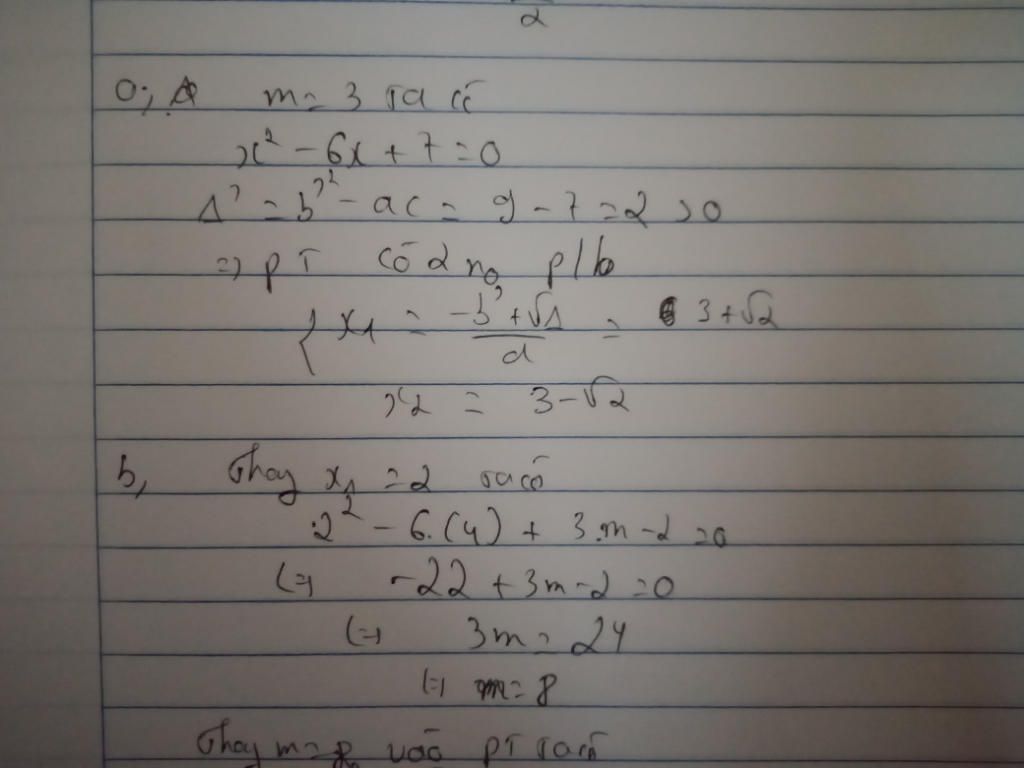 2
a; m = 3 ta có
x² - 6x + 7 = 0
Δ' = b'² - ac = 9 - 7 = 2 > 0
=> PT có 2 no p/b
{ x₁ = (-b' + √Δ) / a = 3 + √2
x₂ = 3 - √2
b, Thay x₁ = 2 ta có
2² - 6.(4) + 3.m - 2 = 0
(=) -22 + 3m - 2 = 0
(=) 3m = 24
(=) m = 8
Thay m = 8 vào PT ta có